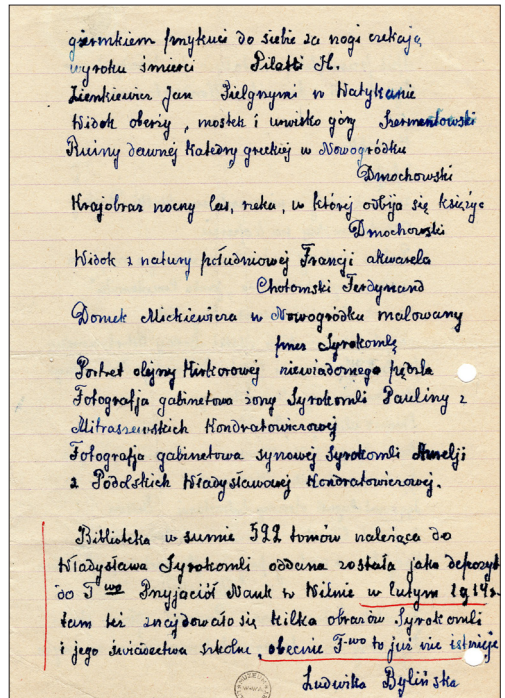 giermkiem przykuci do siebie za nogi czekają
wyroku śmierci Pilatti H.
Zienkiewicz Jan Pielgrzymi w Watykanie
Widok oberży, mostek i urwisko góry Szermentowski
Ruiny dawnej Katedry greckiej w Nowogródku
Dmochowski
Krajobraz nocny las, rzeka, w której odbija się księżyc
Dmochowski
Widok z natury południowej Francji akwarela
Chotomski Ferdynand
Domek Mickiewicza w Nowogródku malowany
przez Syrokomlę
Portret olejny Kirkorowej niewiadomego pędzla
Fotografja gabinetowa żony Syrokomli Pauliny z
Mitraszewskich Kondratowiczowej
Fotografja gabinetowa synowej Syrokomli Aurelji
z Podolskich Władysławowej Kondratowiczowej.
Biblioteka w sumie 522 tomów należąca do
Władysława Syrokomli oddana została jako depozyt
do T-wa Przyjaciół Nauk w Wilnie w lutym 1914 r.
tam też znajdowało się kilka obrazów Syrokomli
i jego świadectwa szkolne, obecnie T-wo to już nie istnieje
Ludwika Bylińska
MUZEUM